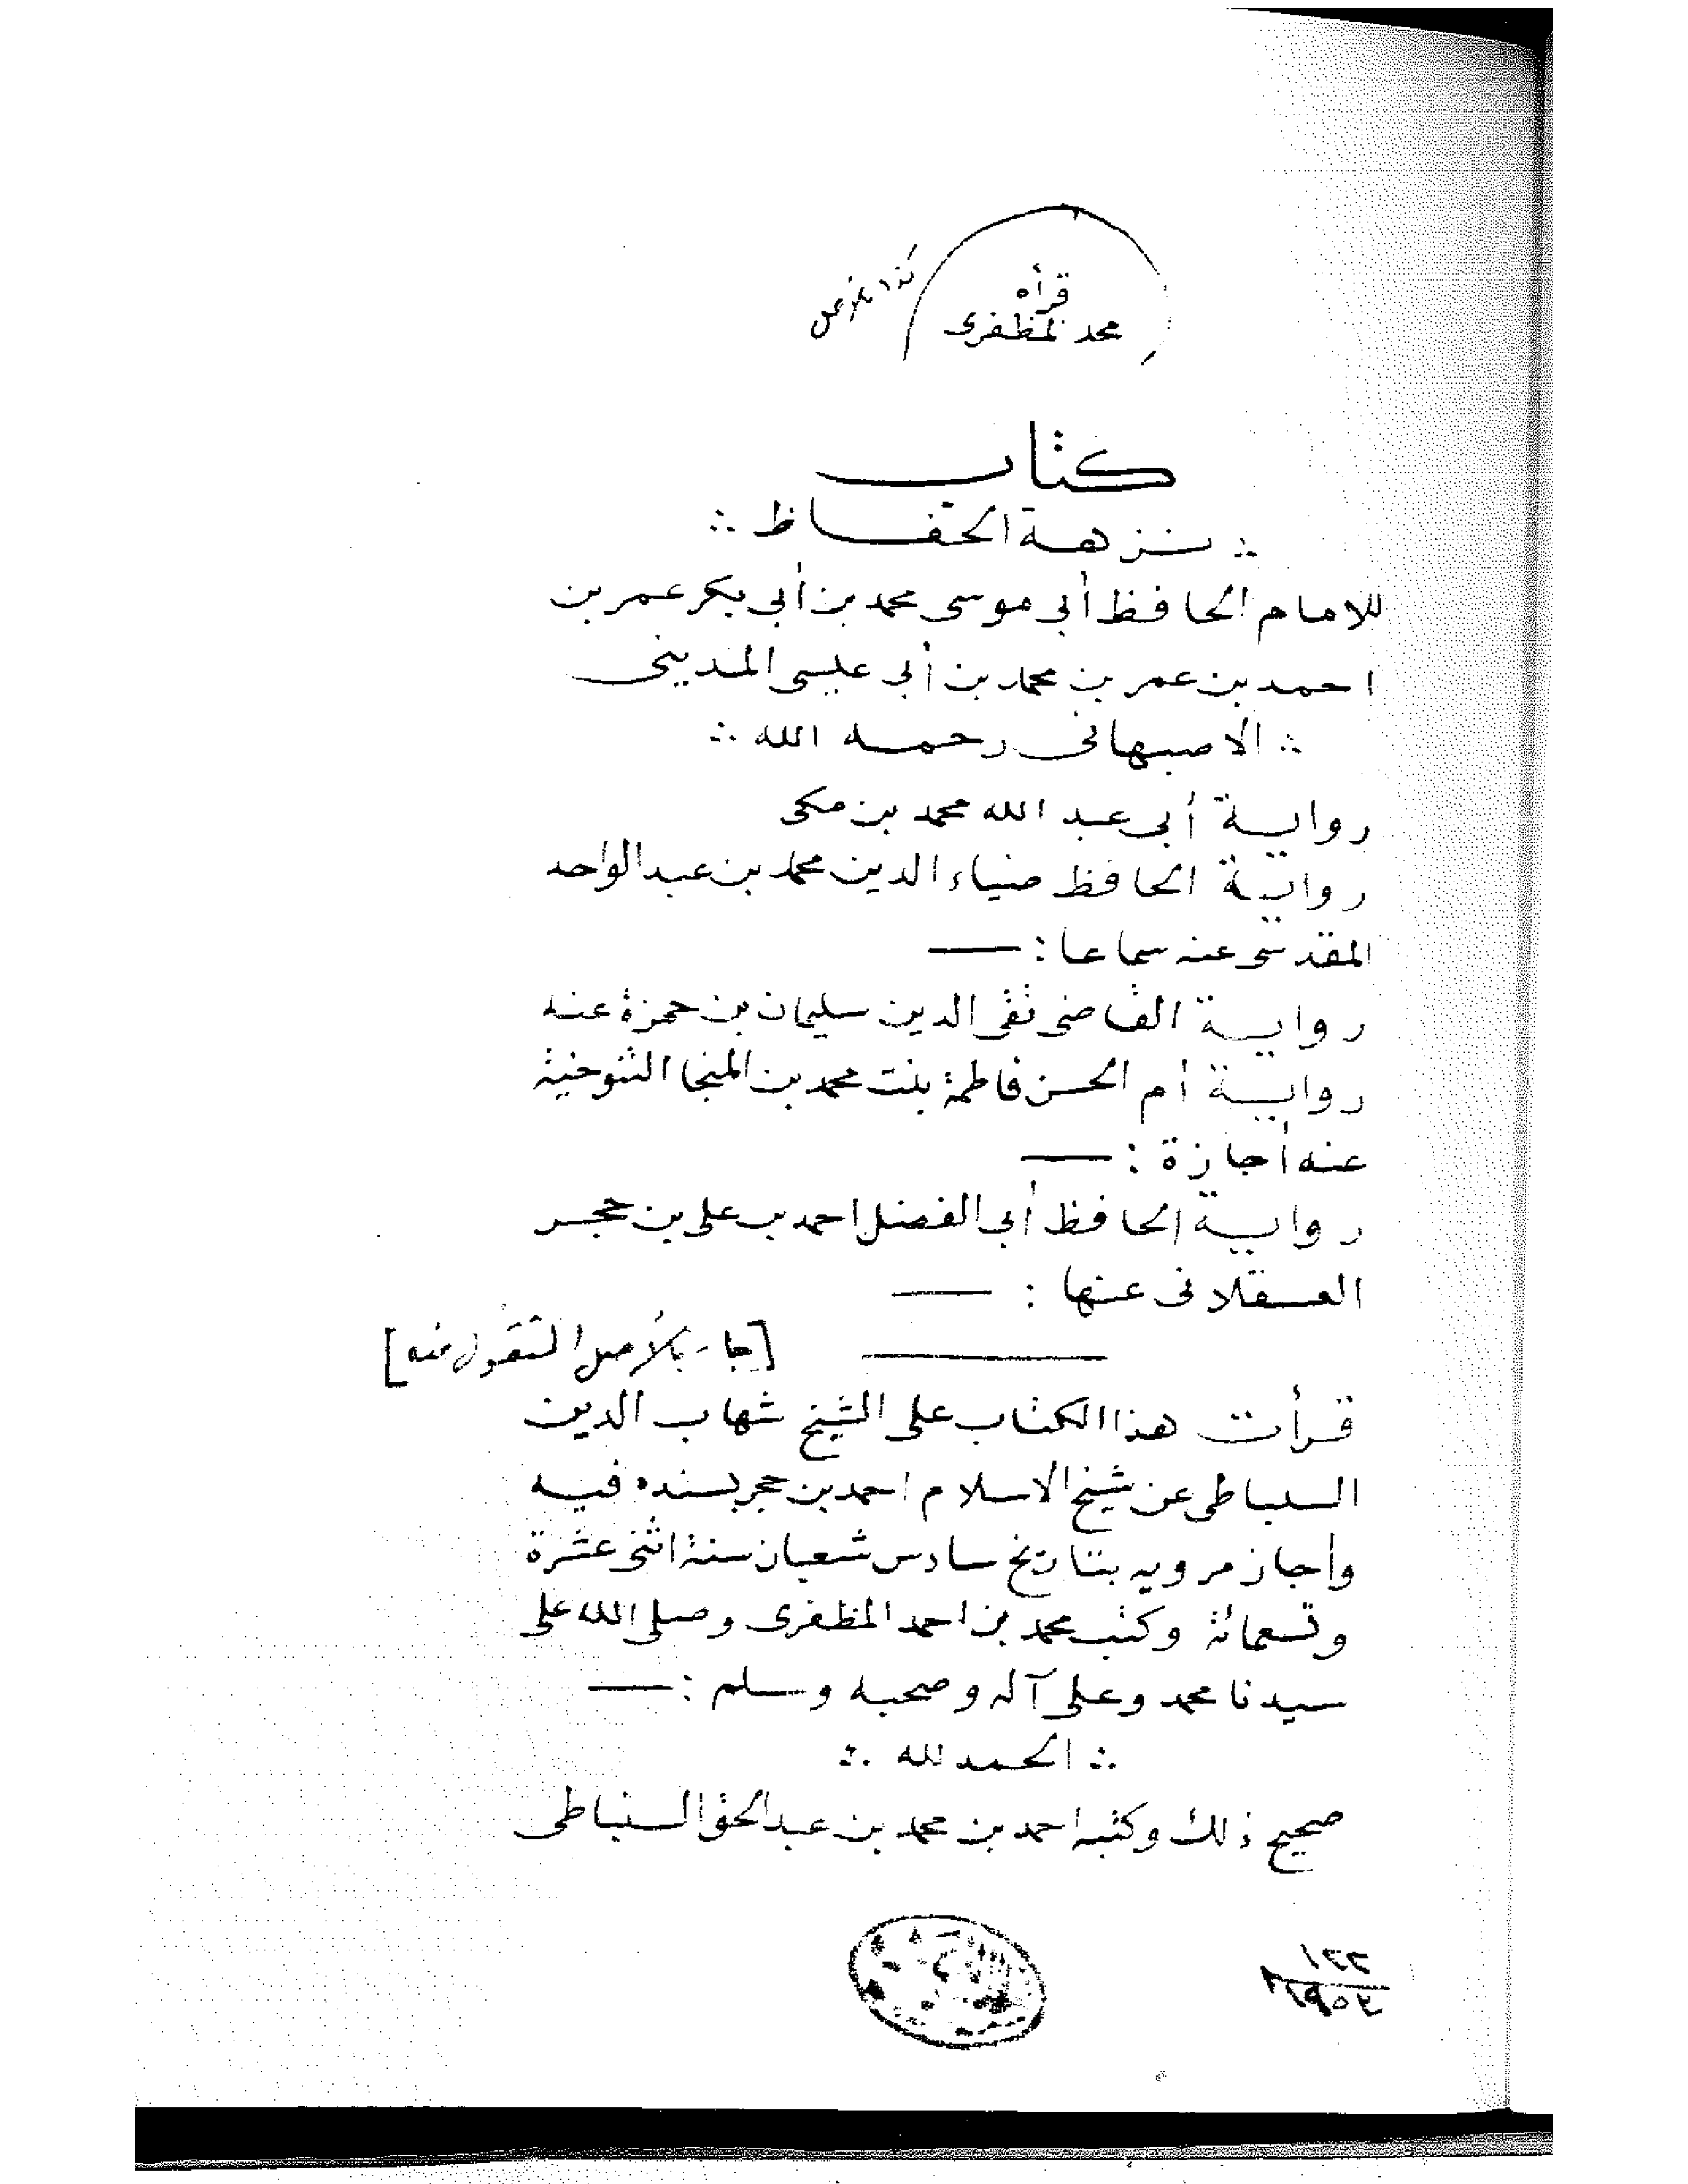 قرأه
محمد المظفرى
كذا بالأصل
كتاب
نزهة الحفاظ
للامام الحافظ أبي موسى محمد بن أبي بكر عمر بن
احمد بن عمر بن محمد بن أبي عيسى المديني
الاصبهانى رحمه الله
رواية أبي عبد الله محمد بن مكى
رواية الحافظ ضياء الدين محمد بن عبد الواحد
المقدسى عنه سماعا :—
رواية القاضى تقى الدين سليمان بن حمزة عنه
رواية أم الحسن فاطمة بنت محمد بن المنجا التنوخية
عنه أجازة :—
رواية الحافظ أبي الفضل احمد بن على بن حجر
العسقلانى عنها :—
[جاء بالأصل المنقول منه]
قرأت هذا الكتاب على الشيخ شهاب الدين
السنباطى عن شيخ الاسلام احمد بن حجر بسنده فيه
وأجاز مرويه بتاريخ سادس شعبان سنة اثنى عشرة
وتسعمائة وكتب محمد بن احمد المظفرى وصلى الله على
سيدنا محمد وعلى آله وصحبه وسلم :—
الحمد لله
صحيح ذلك وكتبه احمد بن محمد بن عبد الحق السنباطى
١٢٢